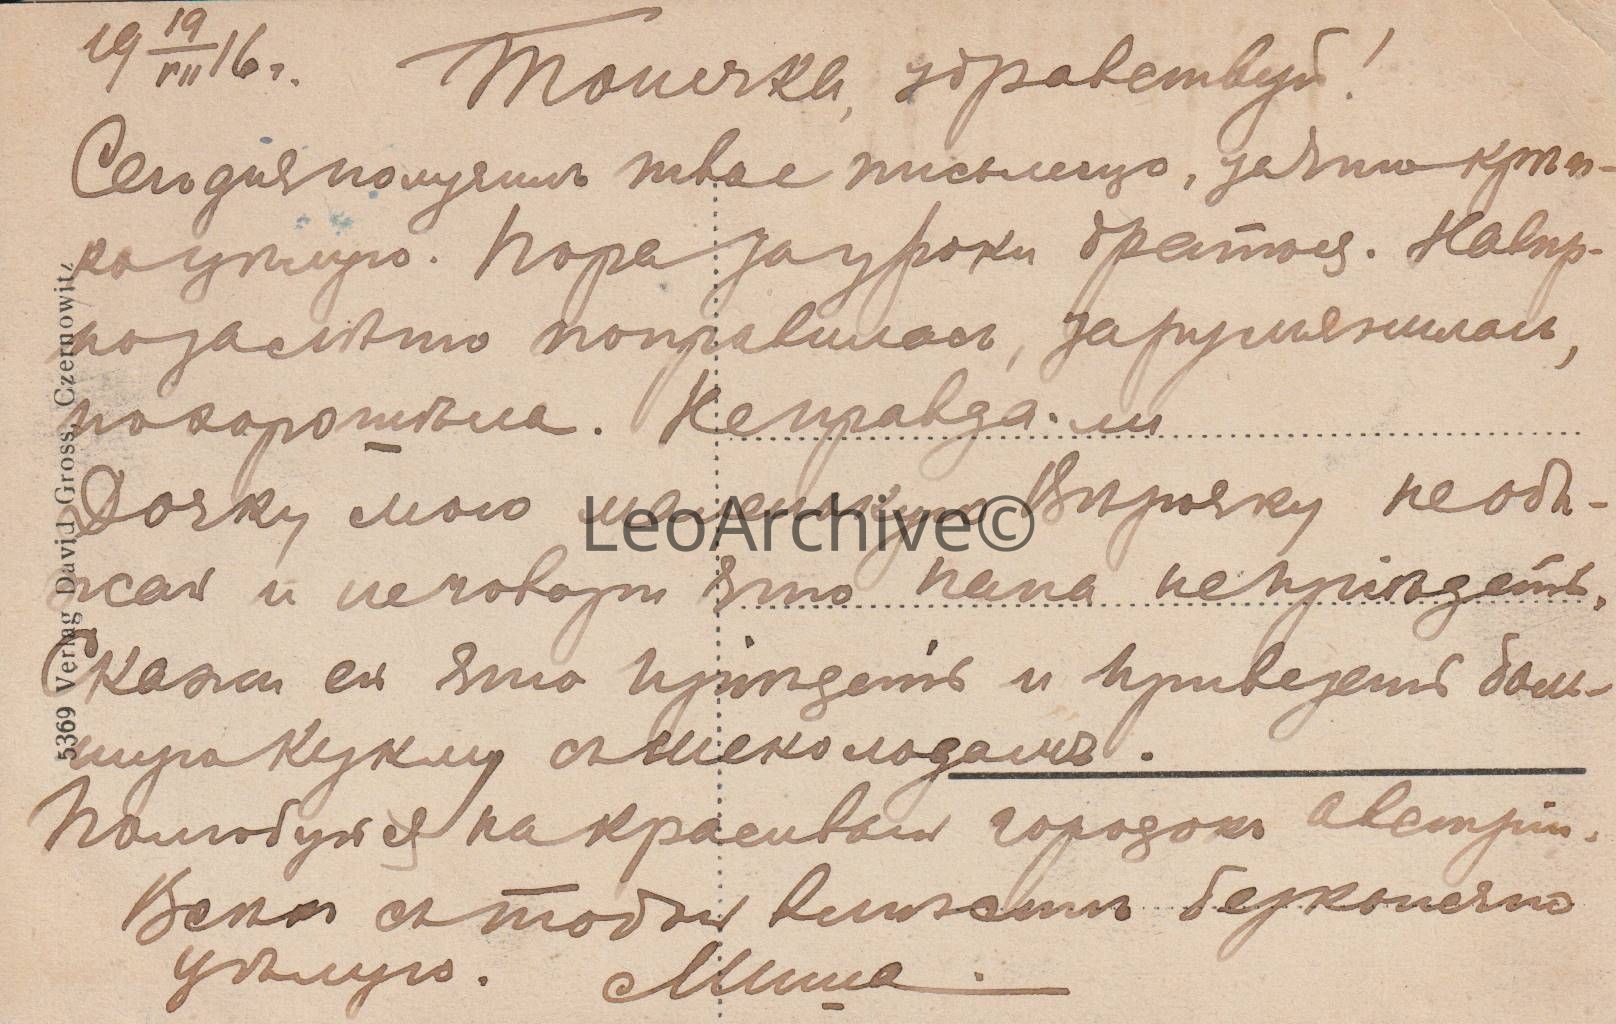 19 19/VII 16 г.
Тонечка, здравствуй!
Сегодня получилъ твое письмецо, за что крѣп-
ко цѣлую. Пора за уроки браться. Навѣр-
но за лѣто поправилась, зарумянилась,
похорошѣла. Не правда-ли
Дочку мою маленькую Вѣрочку не оби-
жай и не говори что папа не пріѣдетъ.
Скажи ей что пріѣдетъ и привезетъ боль-
шую куклу съ шеколодомъ.
Полюбуйся на красивый городокъ Австріи.
Всѣхъ съ тобой вмѣстѣ безконечно
цѣлую. Миша.
5369 Verlag David Gross, Czernowitz
LeoArchive©